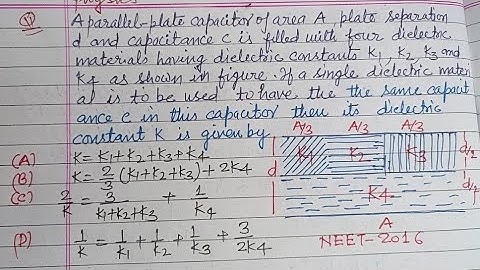 V
A parallel-plate capacitor of area A, plate separation
d and capacitance C is filled with four dielectric
materials having dielectric constants K1, K2, K3 and
K4 as shown in figure. If a single dielectric mater
al is to be used to have the the same capacit
ance c in this capacitor then its dielectric
constant K is given by
A/3 A/3 A/3
(A) K = K1+K2+K3+K4
(B) K = 2/3 (K1+K2+K3) + 2K4
(C) 2/K = 3/K1+K2+K3 + 1/K4
(D) 1/K = 1/K1 + 1/K2 + 1/K3 + 3/2K4
d K1 K2 K3 d/2
K4 d/2
A
NEET-2016